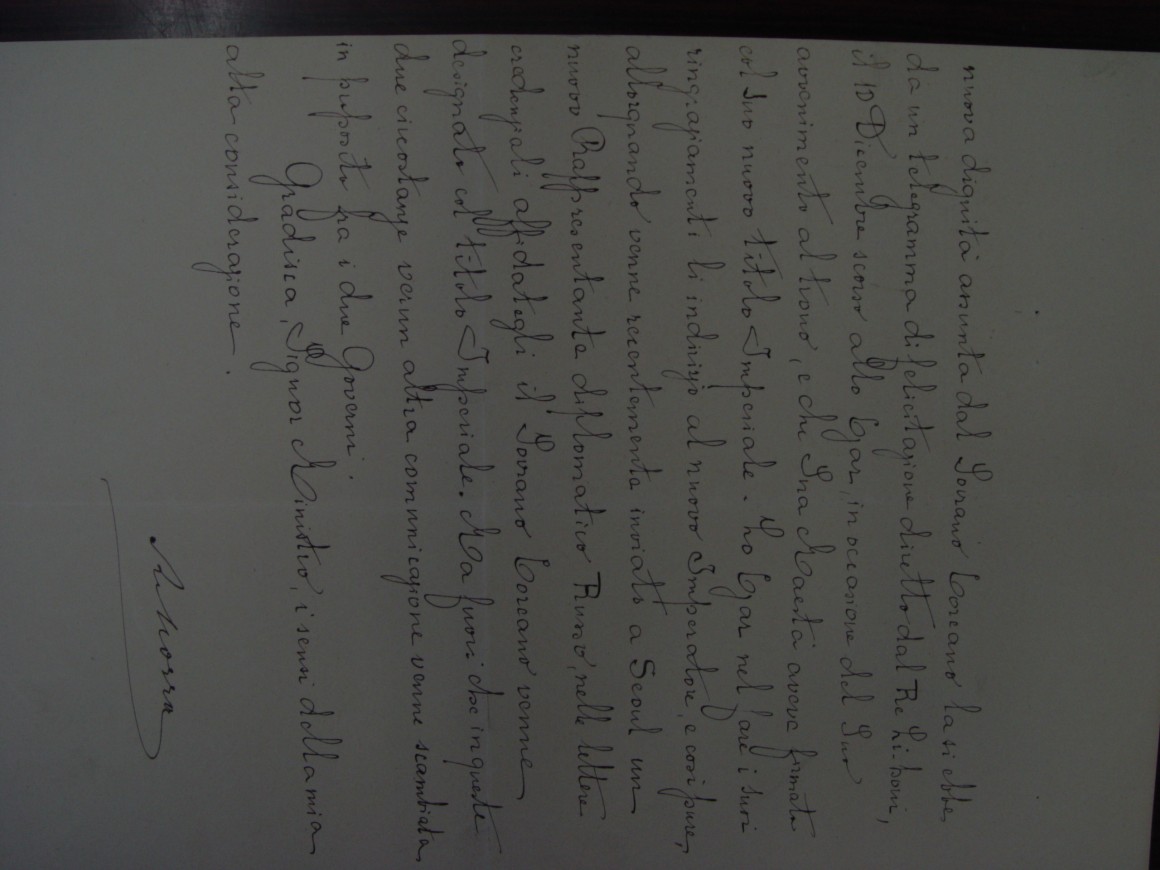 nuova dignità assunta dal Sovrano Coreano la si ebbe
da un telegramma di felicitazione diretto dal Re Li-hsi,
il 10 Dicembre scorso allo Czar, in occasione del Suo
avvenimento al trono, e che Sua Maestà aveva firmato
col Suo nuovo titolo Imperiale. Lo Czar nel fare i suoi
ringraziamenti li indirizzò al nuovo Imperatore, e così pure,
allorquando venne recentemente inviato a Seoul un
nuovo Rappresentante diplomatico Russo, nelle lettere
credenziali affidategli il Sovrano Coreano venne
designato col titolo Imperiale. Ma fuori che in queste
due circostanze verun altra comunicazione venne scambiata
in proposito fra i due Governi.
Gradisca, Signor Ministro, i sensi della mia
alta considerazione.